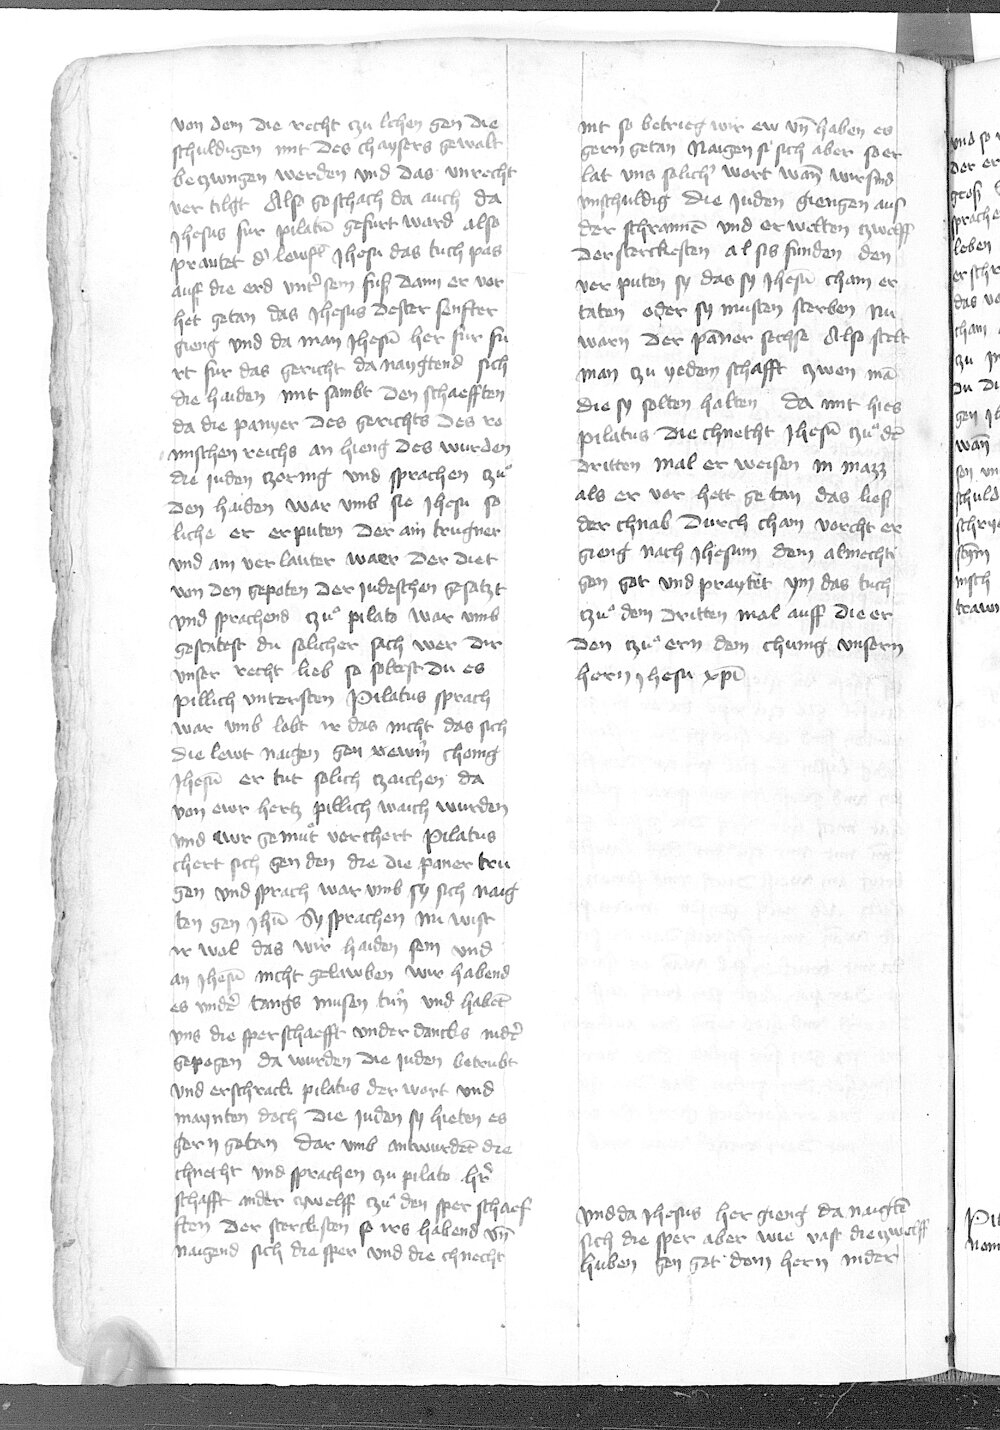 von dem die recht czu lehen gen die
schuldigen mit des chaysers gewalt
beczwngen werden vnd das vnrecht
ver tilgt Also geschach da auch da
Jhesus fur pilatū gefurt ward also
prautet d' lewffl Jhesu das tuch pas
auf die erd vnt' sein fuß dann er vor
het getan das Jhesus dester senfter
gieng vnd da man Jhesū her fur fu
rt fur das gericht da naygtend sich
die haiden mit sambt den schaefften
da die panyer des gerichts des ro
mischen reichs an hieng des wurden
die juden czornig vnd sprachen czu°
den haiden war vmb sie Jhesu so
liche er erputen der ain trugner
vnd ain verlaiter waer der diet
von den gepoten der judeschen gesatzt
vnd sprachend czu° pilato war vmb
gestatest du solicher sach wer dir
vnser recht lieb so soltest du es
pillich vntersten Pilatus sprach
war vmb lobt ir das nicht das sich
die lewt naigen gen ewrm chonig
Jhesū er tut solich czaichen da
von ewr hertz pillich waich wurden
vnd ewr gemut verchert Pilatus
chert sich gen den die die paner tru
gen vnd sprach war vmb sy sich naig
ten gen Jhū Sy sprachen nu wist
ir wol das wir haiden sein vnd
an Jhesū nicht gelawben wir habend
es vnder tangs musen tun vnd habet
vns die sper schaefft vnder dancks nider
gepogen da wurden die juden betrubt
vnd erschrack pilatus der wort vnd
maynten doch die juden sy hieten es
gern getan dar vmb antwurdet die
chnecht vnd sprachen czu pilato hr
schafft ander czwelff czu° den sper schaef
ften der sterckisten so irs habend vn̄
naigend sich die sper vnd die chnecht
nit so betrieg wir ew vn̄ haben es
gern getan Naigen si sich aber so er
lat vns solich' wort wann wir sind
vnschuldig die juden giengen aus
der schrannē vnd erwelten czwelff
der sterckesten als sis funden den
ver puten sy das sy Jhesū chain er
taten oder sy musten sterben Nu
warn der pāner sechse Also stelt
man czu yedem schafft czwen mā
die sy solten halten da mit hies
pilatus die chnecht Jhesū czu° dē
dritten mal er weisen in mazz
als er vor hett getan das lief
der chnab durch chain vorcht er
gieng nach Jhesum dem almechti
gen got vnd praytet ym das tuch
czu° dem dritten mal auff die er
den czu° ern dem chunig vnsern
hern Jhesu xpī
vnd da Jhesus her gieng da naigtē
sich die sper aber wie vast die czwelff
huben gen got dem hern nider